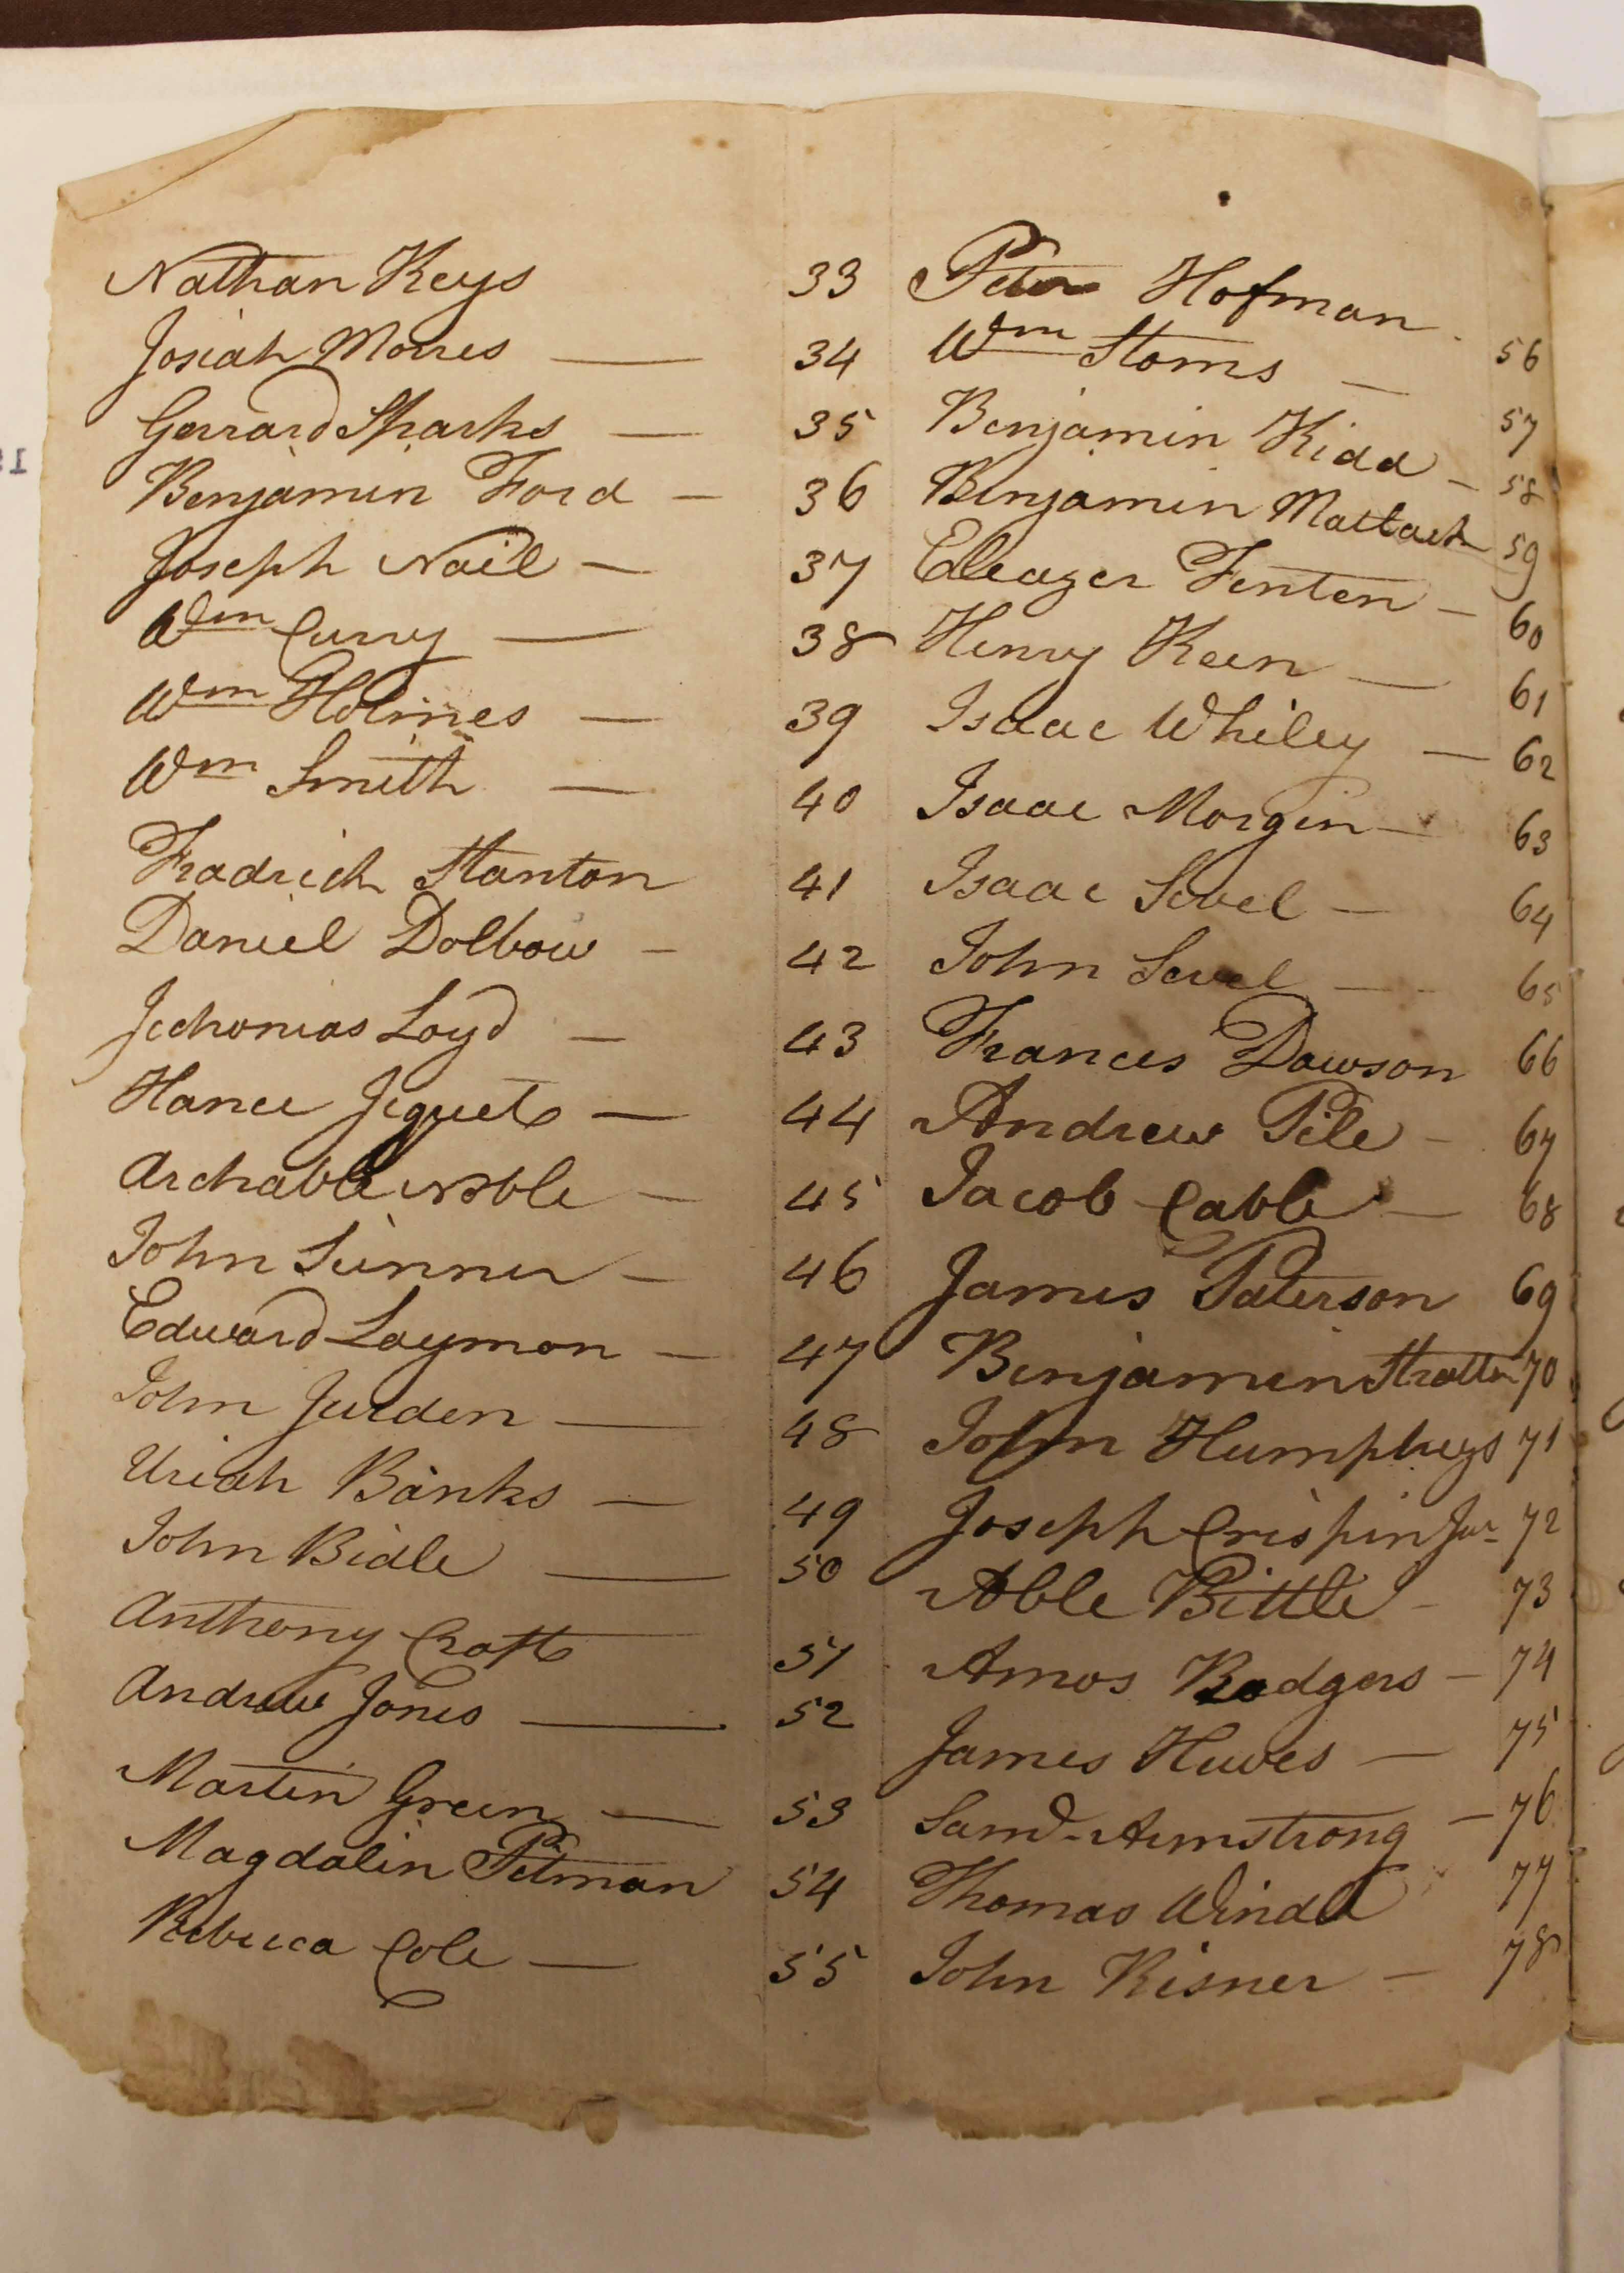 Nathan Keys 33
Josiah Morres — 34
Gerrard Sparks — 35
Benjamin Ford — 36
Joseph Nail — 37
Wm Curry — 38
Wm Holmes — 39
Wm Smith — 40
Fradrick Stanton 41
Daniel Dolbow — 42
Jechonias Loyd — 43
Hance Jequet — 44
Archable Noble — 45
John Sinner — 46
Edward Laymon — 47
John Jurden — 48
Uriah Banks — 49
John Bidle — 50
Anthony Craft — 51
Andrew Jones — 52
Martin Green — 53
Magdalin Pitman 54
Rebecca Cole — 55
Peter Hofman 56
Wm Stoms — 57
Benjamin Kidd — 58
Benjamin 59
Eleazer Fenten — 60
Henry Keen — 61
Isaac Whiley — 62
Isaac Morgin — 63
Isaac Sevel — 64
John Sevel — 65
Frances Dawson 66
Andrew Pile — 67
Jacob Cable — 68
James Paterson 69
Benjamin Stratten 70
John Humphreys 71
Joseph Crispin Jur 72
Able Bittle — 73
Amos Rodgers — 74
James Huwes — 75
Samd Armstrong — 76
Thomas Windl 77
John Kisner — 78